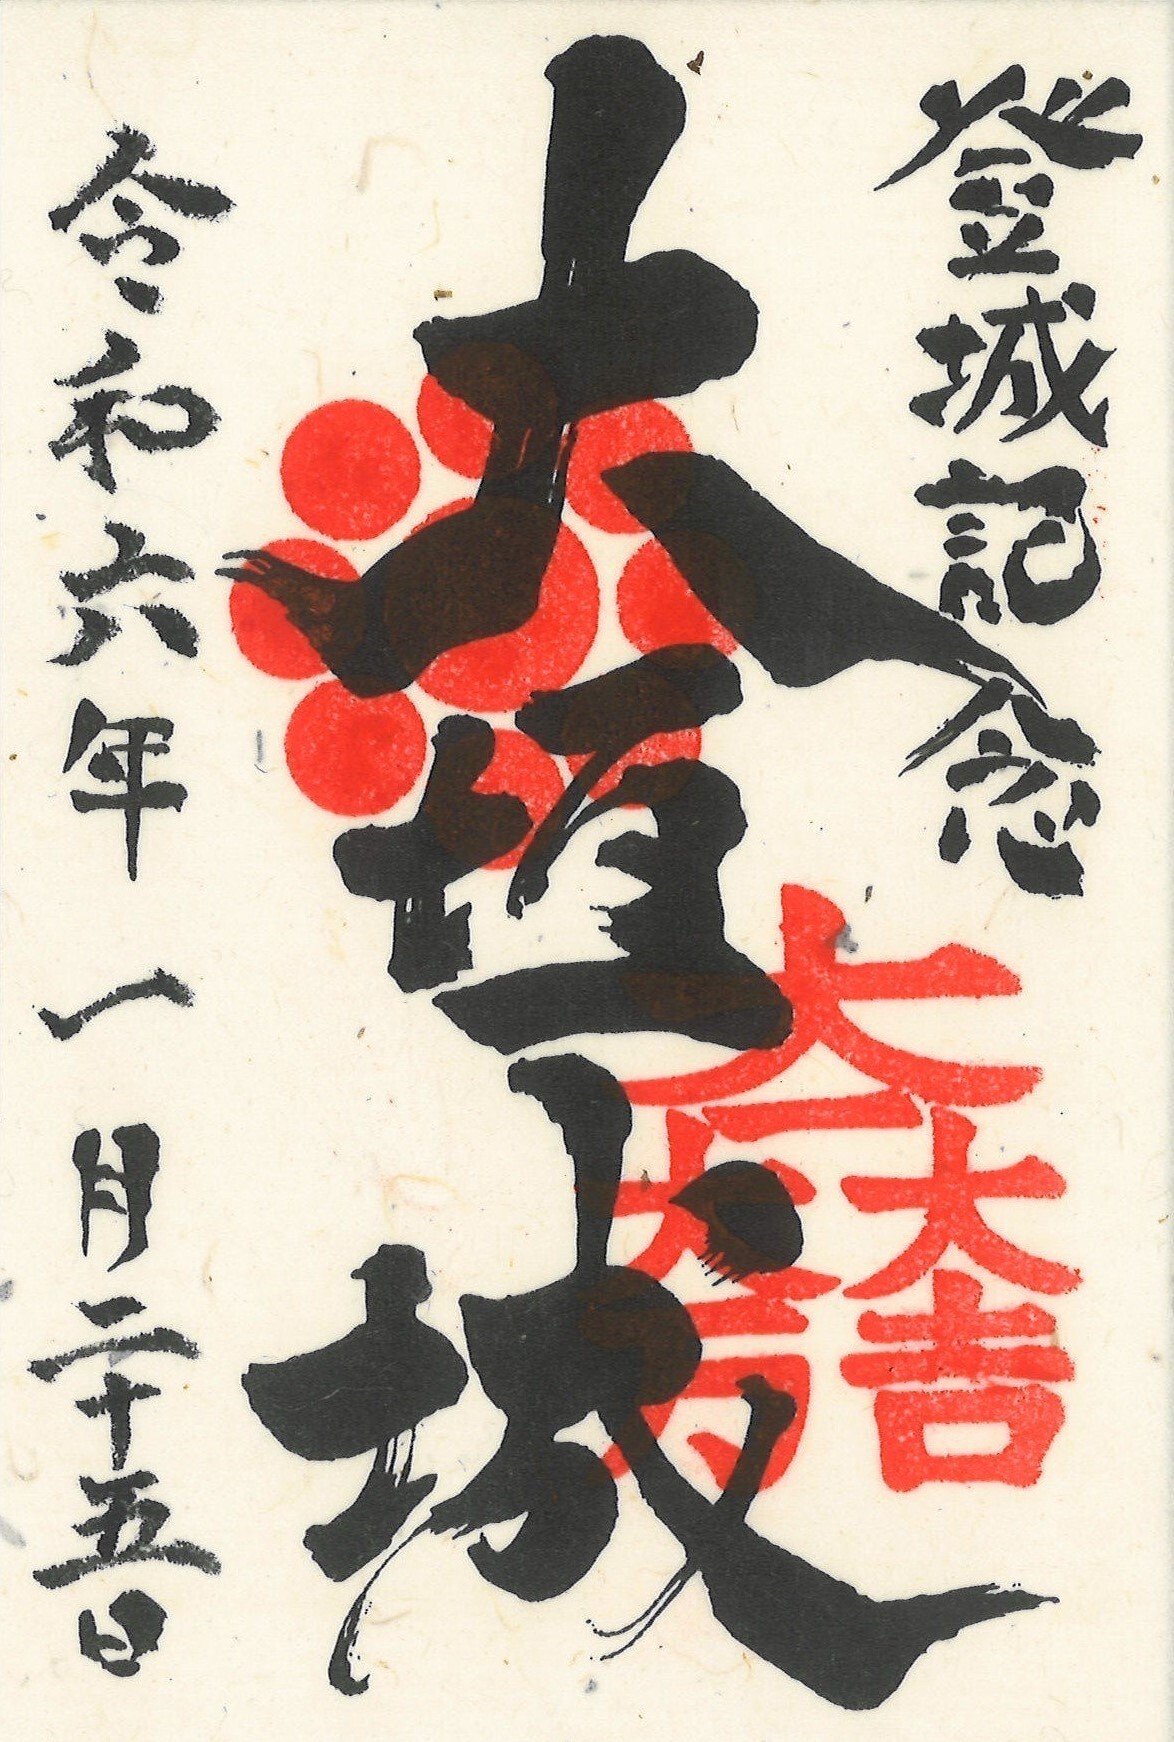 登城記念
大垣城
大一大万大吉
令和六年一月二十五日